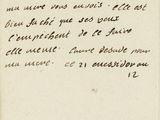 ma mere vous envois. elle est
bien faché que ses yeux
l'empechent de le faire
elle meme. Laure debade pour
ma mere. ce 21 messidor an
12